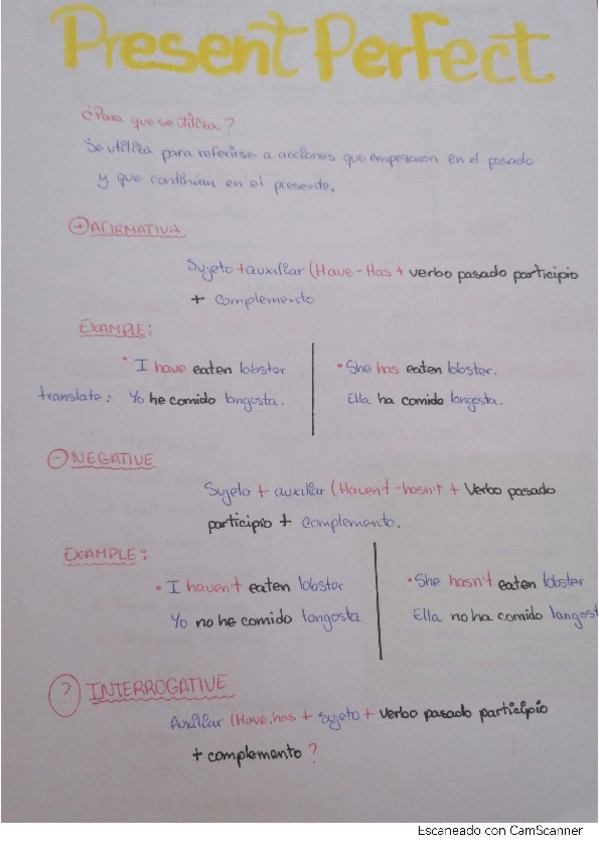 Present Perfect
¿Para que se utiliza?
Se utiliza para referirse a acciones que empezaron en el pasado
y que continúan en el presente.
+ AFIRMATIVA
Sujeto + auxiliar (Have - Has + verbo pasado participio
+ complemento
EXAMPLE:
• I have eaten lobster
• She has eaten lobster.
translate: Yo he comido langosta.
Ella ha comido langosta.
- NEGATIVE
Sujeto + auxiliar (Haven't - hasn't + Verbo pasado
participio + complemento.
EXAMPLE:
• I haven't eaten lobster
• She hasn't eaten lobster
Yo no he comido langosta
Ella no ha comido langost
? INTERROGATIVE
Auxiliar (Have, has + sujeto + verbo pasado participio
+ complemento ?
Escaneado con CamScanner